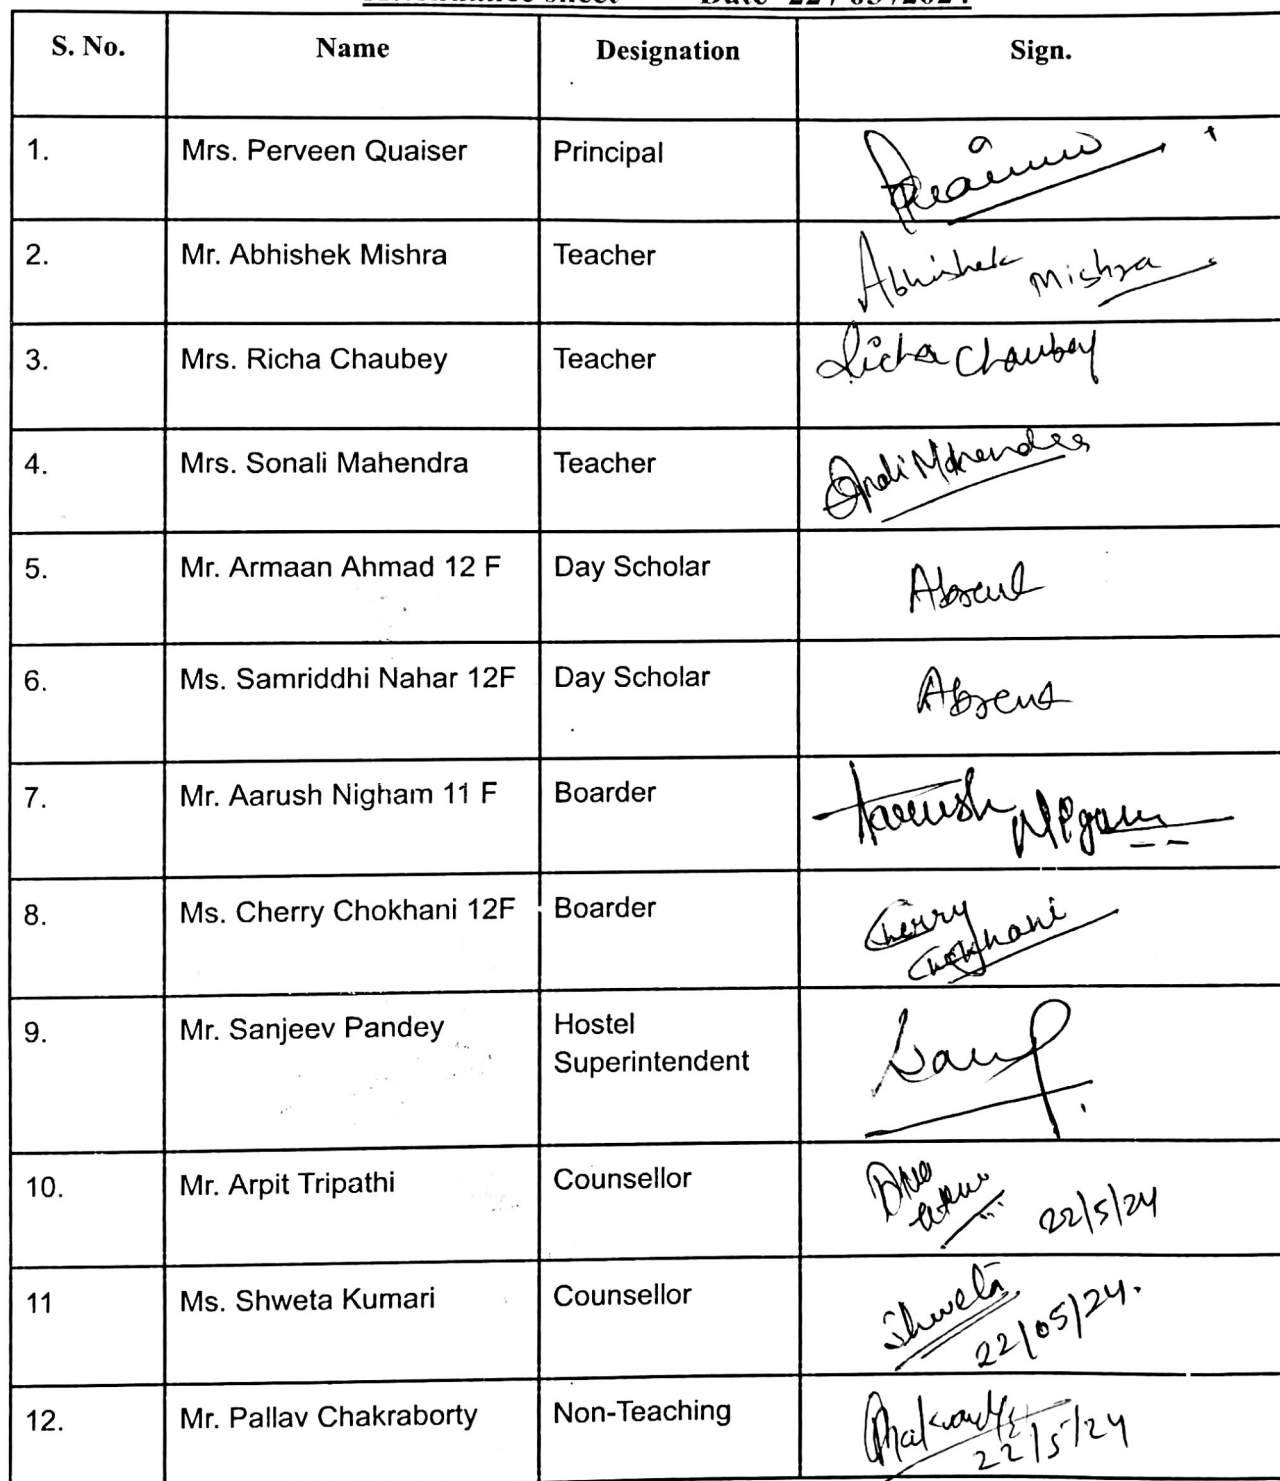 Attendance sheet Date- 22 / 05 /2024
S. No. Name Designation Sign.
1. Mrs. Perveen Quaiser Principal
2. Mr. Abhishek Mishra Teacher Abhishek Mishra
3. Mrs. Richa Chaubey Teacher Richa Chaubey
4. Mrs. Sonali Mahendra Teacher
5. Mr. Armaan Ahmad 12 F Day Scholar Absent
6. Ms. Samriddhi Nahar 12F Day Scholar Absent
7. Mr. Aarush Nigham 11 F Boarder Aarush Nigam
8. Ms. Cherry Chokhani 12F Boarder Cherry
Chokhani
9. Mr. Sanjeev Pandey Hostel
Superintendent
10. Mr. Arpit Tripathi Counsellor 22/5/24
11 Ms. Shweta Kumari Counsellor Shweta
22/05/24.
12. Mr. Pallav Chakraborty Non-Teaching
22/5/24